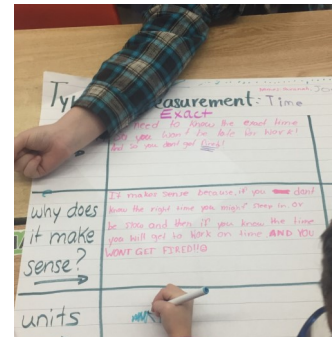 Measurement: Time
Exact
need to know the exact time
so you won't be late for work!
And so you dont get fired!
why does
it make
sense?
It makes sense because, if you dont
know the right time you might sleep in or
be late and then if you know the time
you will get to work on time AND YOU
WONT GET FIRED!!!
units